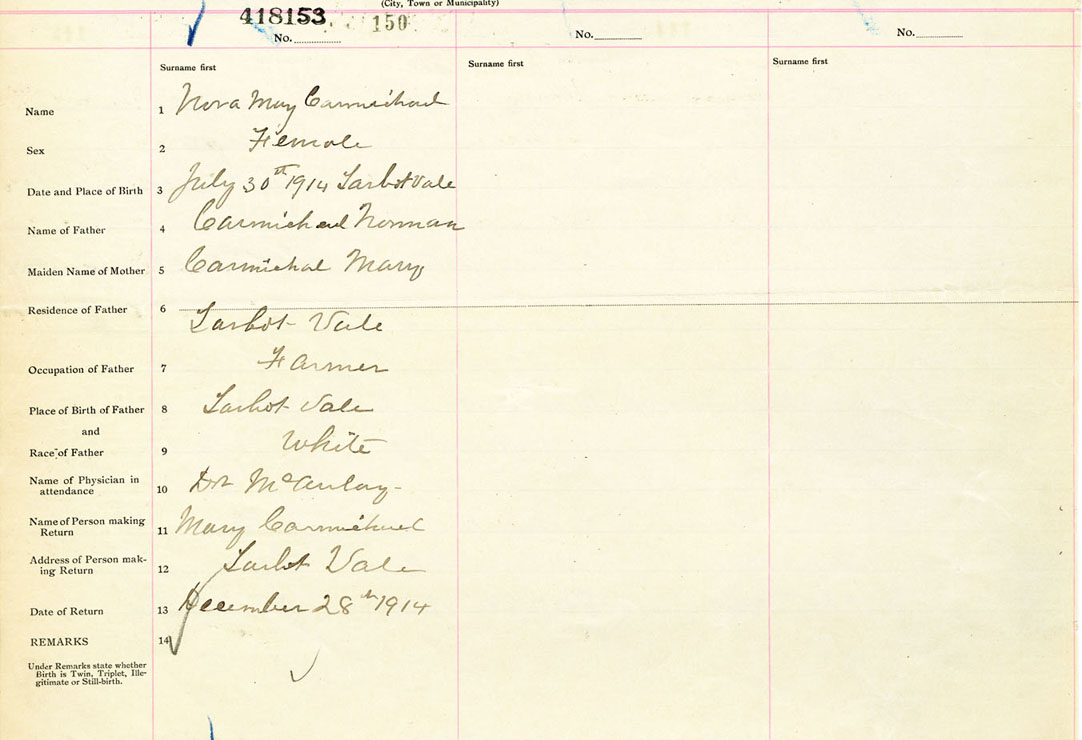 (City, Town or Municipality)
418153
150
No.
No.
No.
Surname first
Surname first
Surname first
Name 1 Nora May Carmichael
Sex 2 Female
Date and Place of Birth 3 July 30th 1914 Tarbot Vale
Name of Father 4 Carmichael Norman
Maiden Name of Mother 5 Carmichal Mary
Residence of Father 6 Tarbot Vale
Occupation of Father 7 Farmer
Place of Birth of Father 8 Tarbot Vale
and
Race of Father 9 White
Name of Physician in
attendance 10 Dr McAulay
Name of Person making
Return 11 Mary Carmichael
Address of Person mak-
ing Return 12 Tarbt Vale
Date of Return 13 December 28th 1914
REMARKS 14
Under Remarks state whether
Birth is Twin, Triplet, Ille-
gitimate or Still-birth.